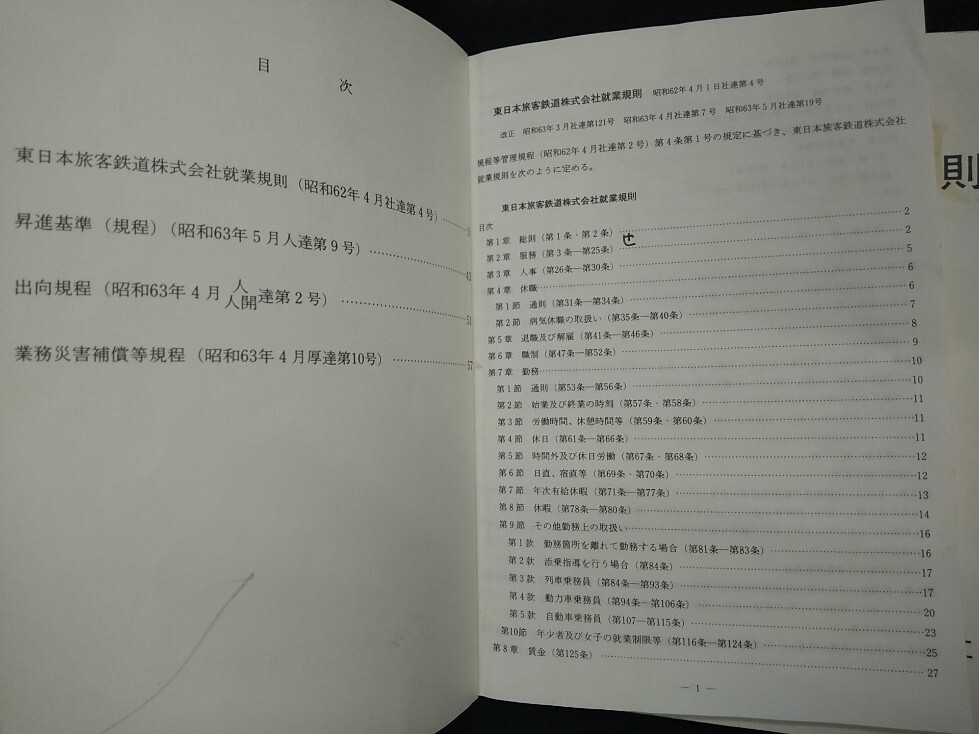 目次
東日本旅客鉄道株式会社就業規則（昭和62年4月社達第4号）……1
昇進基準（規程）（昭和63年5月人達第9号）……
出向規程（昭和63年4月人人開達第2号）……51
業務災害補償等規程（昭和63年4月厚達第10号）……
東日本旅客鉄道株式会社就業規則 昭和62年4月1日社達第4号
改正 昭和63年3月社達第121号 昭和63年4月社達第7号 昭和63年5月社達第19号
規程等管理規程（昭和62年4月社達第2号）第4条第1号の規定に基づき、東日本旅客鉄道株式会社
就業規則を次のように定める。
東日本旅客鉄道株式会社就業規則
目次
第1章 総則（第1条・第2条）……2
せ
第2章 服務（第3条―第25条）……2
第3章 人事（第26条―第30条）……5
第4章 休職……6
第1節 通則（第31条―第34条）……6
第2節 病気休職の取扱い（第35条―第40条）……7
第5章 退職及び解雇（第41条―第46条）……8
第6章 職制（第47条―第52条）……9
第7章 勤務……10
第1節 通則（第53条―第56条）……10
第2節 始業及び終業の時刻（第57条・第58条）……11
第3節 労働時間、休憩時間等（第59条・第60条）……11
第4節 休日（第61条―第66条）……11
第5節 時間外及び休日労働（第67条・第68条）……12
第6節 日直、宿直等（第69条・第70条）……12
第7節 年次有給休暇（第71条―第77条）……13
第8節 休暇（第78条―第80条）……14
第9節 その他勤務上の取扱い……16
第1款 勤務箇所を離れて勤務する場合（第81条―第83条）……16
第2款 添乗指導を行う場合（第84条）……17
第3款 列車乗務員（第84条―第93条）……17
第4款 動力車乗務員（第94条―第106条）……20
第5款 自動車乗務員（第107―第115条）……23
第10節 年少者及び女子の就業制限等（第116条―第124条）……25
第8章 賃金（第125条）……27
― 1 ―
則